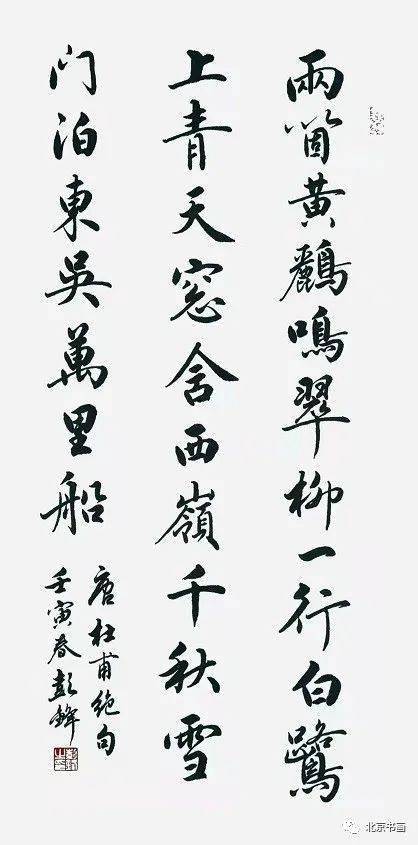 兩箇黃鸝鳴翠柳一行白鷺
上青天窓含西嶺千秋雪
门泊東吳萬里船
唐杜甫绝句
壬寅春彭鋒
北京书画